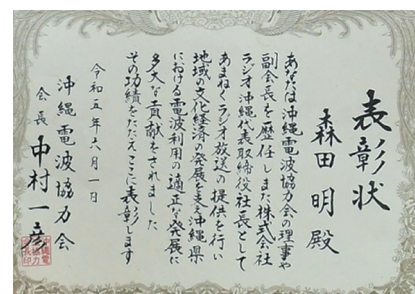 表彰状
森田明殿
あなたは沖縄電波協力会の理事や
副会長を歴任しまた株式会社
ラジオ沖縄代表取締役社長として
あまねくラジオ放送の提供を行い
地域の文化経済の発展を支え沖縄県
における電波利用の適正な発展に
多大な貢献をされました
その功績をたたえここに表彰します
令和五年六月一日
沖縄電波協力会
会長 中村一彦